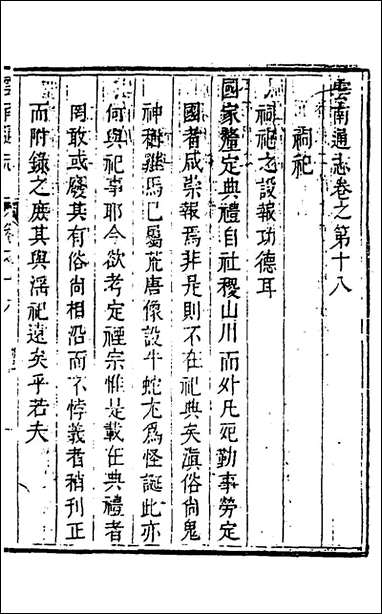 雲南通志卷之第十八
祠祀
祠祀之設報功德耳
國家釐定典禮自社稷山川而外凡死勤事勞定
國者咸崇報焉非是則不在祀典矣滇俗尚鬼
神碧雞馬已屬荒唐像設牛蛇尤爲怪誕此亦
何與祀事耶今欲考定禋宗惟是載在典禮者
罔敢或廢其有俗尚相沿而不悖義者稍刊正
而附錄之庶其與淫祀遠矣乎若夫